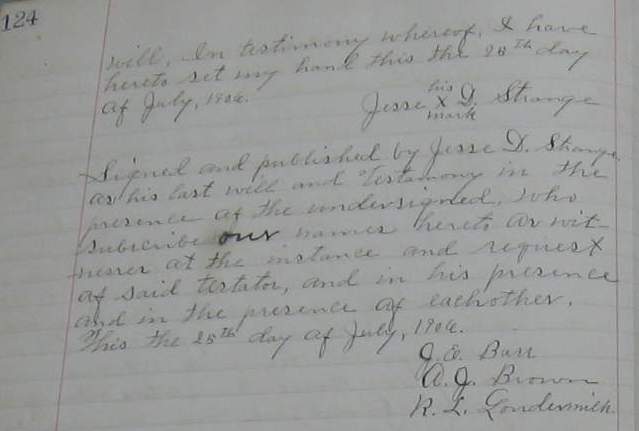 124
will, In testimony whereof, I have
hereto set my hand this the 28th day
of July, 1906.
his
Jesse X D. Strange
mark
Signed and published by Jesse D. Strange,
as his last will and Testamony in the
presence of the undersigned, who
subscribe our names hereto as wit-
nesses at the instance and request
of said testator, and in his presence
and in the presence of eachother.
This the 28th day of July, 1906.
J. E. Barr
A. J. Brown
R. L. Loudermilk